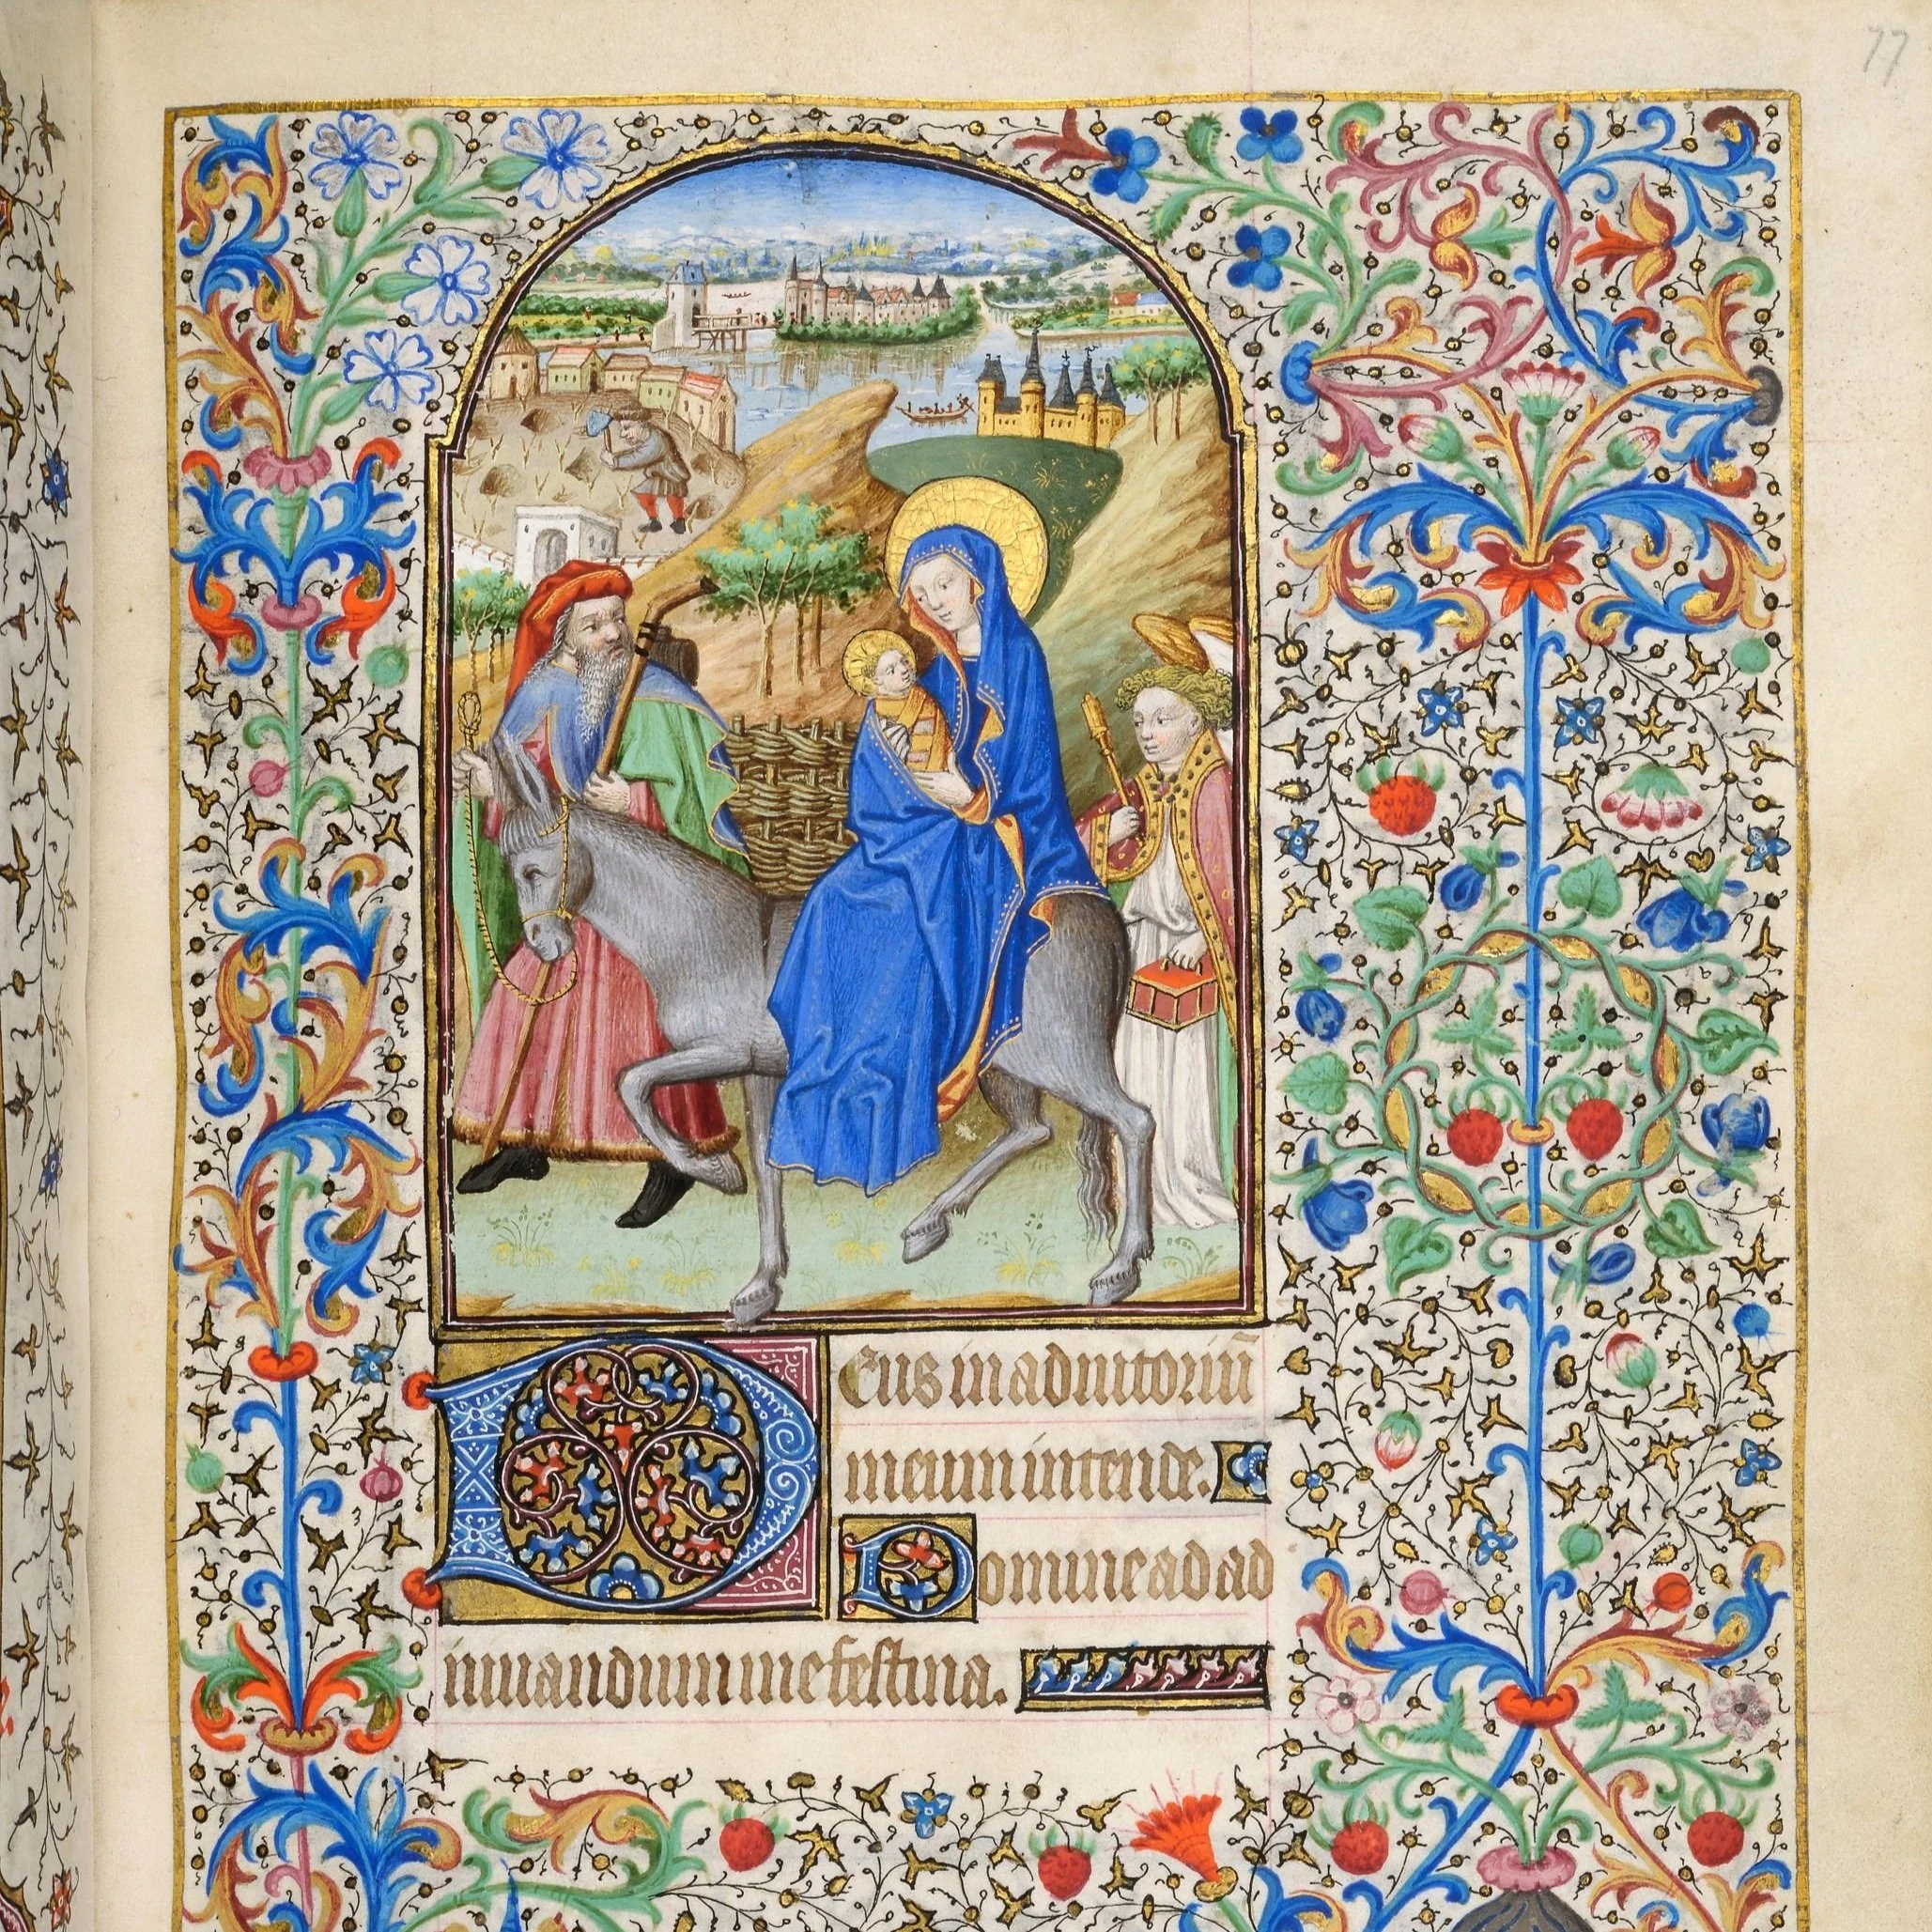 77
Deus in adiutoriū
meum intende.
Domine ad ad
iuuandum me festina.